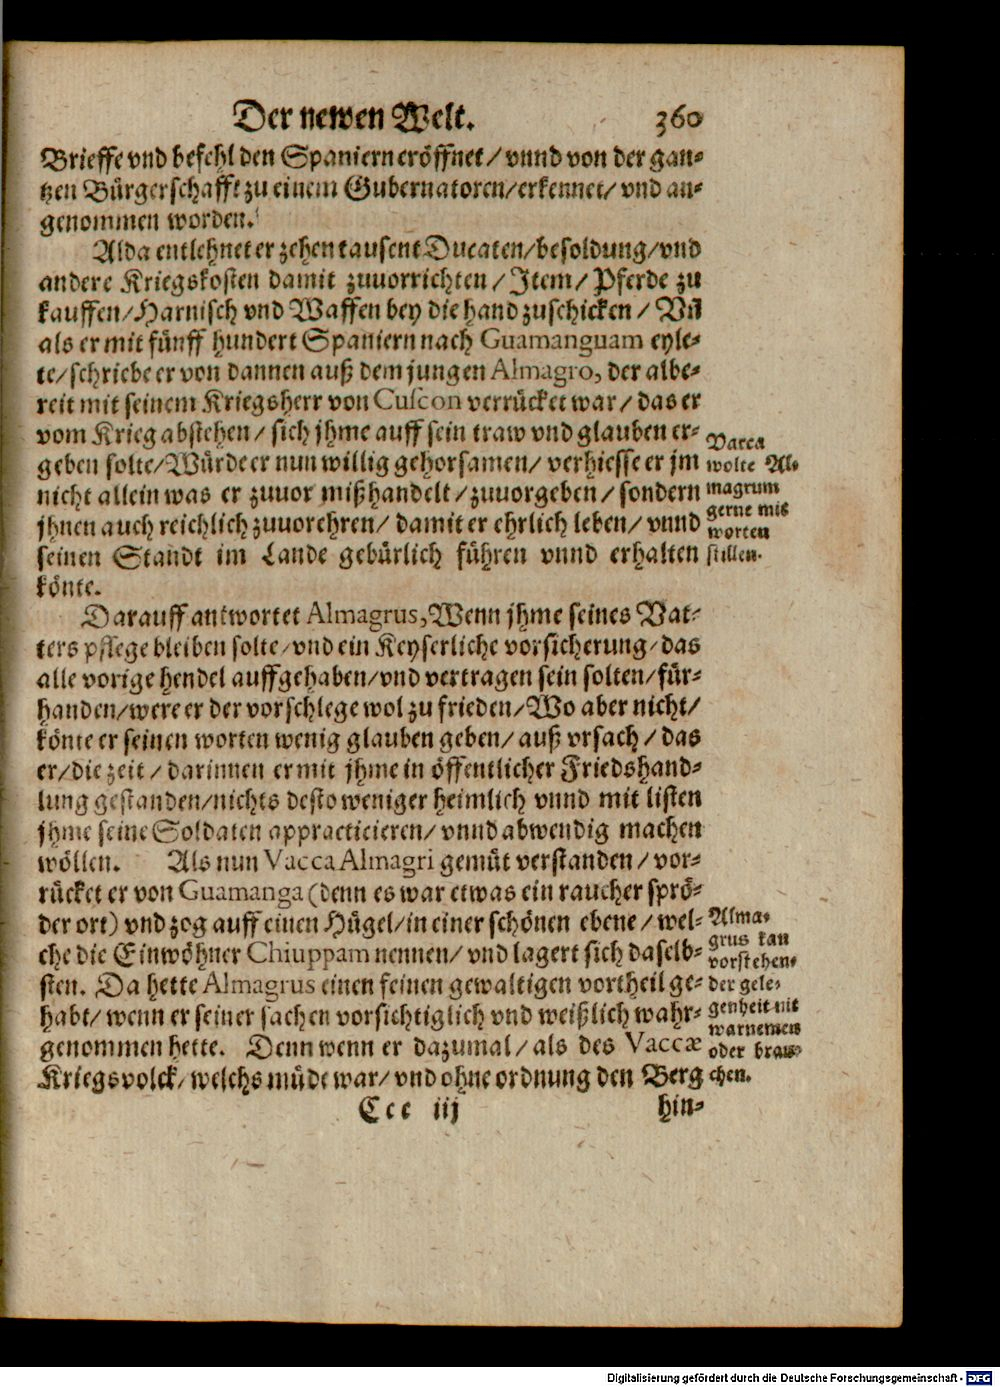 Der newen Welt. 360
Brieffe vnd befehl den Spaniern eröffnet/ vnnd von der gan-
tzen Bürgerschafft zu einem Gubernatoren/ erkennet/ vnd an-
genommen worden.
Alda entlehnet er zehen tausent Ducaten/ besoldung/ vnd
andere Kriegskosten damit zuuorrichten/ Item/ Pferde zu
kauffen/ Harnisch vnd Waffen bey die hand zuschicken/ Vñ
als er mit fünff hundert Spaniern nach Guamanguam eyle-
te/ schriebe er von dannen auß dem jungen Almagro, der albe-
reit mit seinem Kriegsherr von Cuscon verrücket war/ das er
vom Krieg abstehen/ sich jhme auff sein traw vnd glauben er-
geben solte/ Würde er nun willig gehorsamen/ verhiesse er jm
nicht allein was er zuuor mißhandelt/ zuuorgeben/ sondern
jhnen auch reichlich zuuorehren/ damit er ehrlich leben/ vnnd
seinen Standt im Lande gebürlich führen vnnd erhalten
könte.
Vacca
wolte Al-
magrum
gerne mit
worten
stillen.
Darauff antwortet Almagrus, Wenn jhme seines Vat-
ters pflege bleiben solte/ vnd ein Keyserliche vorsicherung/ das
alle vorige hendel auffgehaben/ vnd vertragen sein solten/ für-
handen/ were er der vorschlege wol zu frieden/ Wo aber nicht/
könte er seinen worten wenig glauben geben/ auß vrsach/ das
er/ die zeit/ darinnen er mit jhme in öffentlicher Friedshand-
lung gestanden/ nichts desto weniger heimlich vnnd mit listen
jhme seine Soldaten appracticieren/ vnnd abwendig machen
wöllen. Als nun Vacca Almagri gemüt verstanden/ vor-
rücket er von Guamanga (denn es war etwas ein raucher sprö-
der ort) vnd zog auff einen Hügel/ in einer schönen ebene/ wel-
che die Einwöhner Chiuppam nennen/ vnd lagert sich daselb-
sten. Da hette Almagrus einen feinen gewaltigen vortheil ge-
habt/ wenn er seiner sachen vorsichtiglich vnd weißlich wahr-
genommen hette. Denn wenn er dazumal/ als des Vaccæ
Kriegsvolck/ welchs müde war/ vnd ohne ordnung den Berg
Alma-
grus kan
vorstehen-
der gele-
genheit nit
warnemen
oder brau-
chen.
Ccc iij hin-
Digitalisierung gefördert durch die Deutsche Forschungsgemeinschaft - DFG